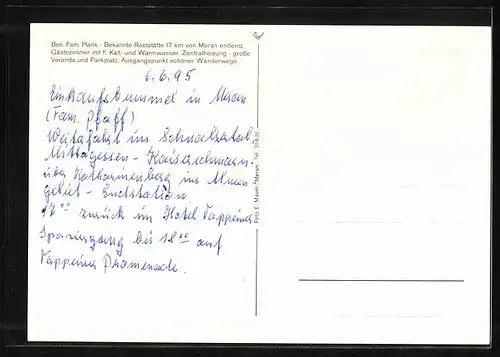 Bes. Fam. Plank - Bekannte Raststätte 17 km von Meran entfernt.
Gästezimmer mit fl. Kalt- und Warmwasser. Zentralheizung - große
Veranda und Parkplatz, Ausgangspunkt schöner Wanderwege
6.6.95
Einkaufsbummel in Meran
(Fam. Pfaff)
Weiterfahrt ins Schnalstal
Mittagessen - Kaiserschmarrn.
über Katharinenberg ins Almen
gebiet - Endstation
17 00 zurück im Hotel Tappeiner
Spaziergang bis 18 00 auf
Tappeiner Promenade.
Foto E. Mauer, Meran - Tel.